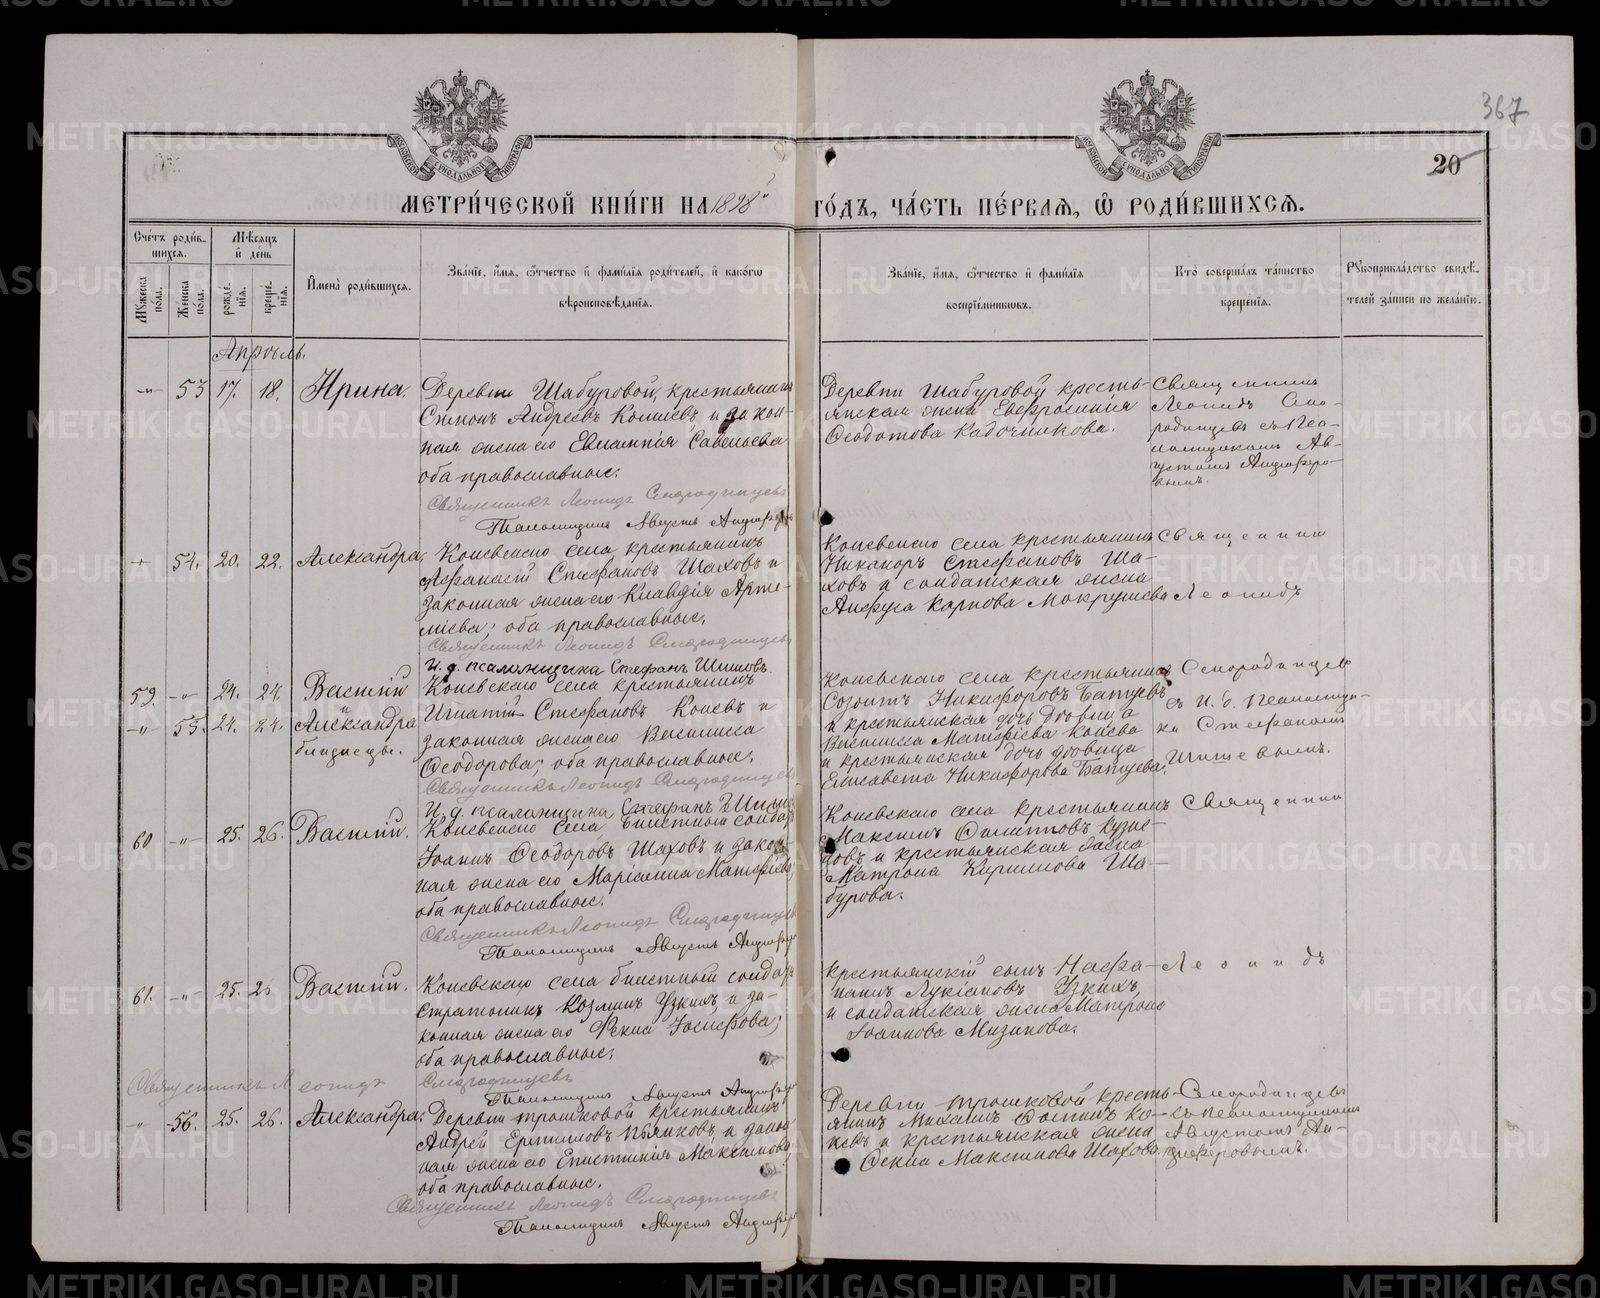 367
20
МЕТРИ́ЧЕСКОЙ КНИ́ГИ НА 1898й ГО́ДЪ, ЧА́СТЬ ПЕ́РВАЯ, Ѡ РОДИ́ВШИХСЯ.
Сче́тъ роди́в-
шихся.
Мѣ́сяцъ
и҆ де́нь
Мꙋ́жеска по́ла.
Же́нска по́ла.
рожде́-
нїѧ.
креще́-
нїѧ.
И҆мена̀ роди́вшихсѧ.
Зва́нїе, и҆́мѧ, ѻ҆́тчество и҆ фамилїѧ роди́телей, и҆ како́гѡ
вѣроисповѣ́данїѧ.
Зва́нїе, и҆́мѧ, ѻ҆́тчество и҆ фами́лїѧ
воспрїе́мникѡвъ.
Кто̀ соверша́лъ та́инство
креще́нїѧ.
Рꙋкоприкла́дство свидѣ́-
телей за́писи по жела́нїю.
Апрѣль.
-"- 53 17. 18. Ирина.
Деревни Шабуровой, крестьянинъ
Симонъ Андреевъ и закон-
ная жена его Евлампія Савельева
оба православные.
Священникъ Леонидъ Смородинцевъ
Псаломщикъ Августъ
Деревни Шабуровой кресть-
янская жена Евфросинія
Ѳеодотова Кадочникова.
Священникъ
Леонидъ Смо-
родинцевъ съ Пса-
ломщикомъ Ав-
густомъ
54. 20. 22. Александра.
Коневскаго села крестьянинъ
Аѳанасій Стефановъ Шаховъ и
законная жена его Клавдія Арте-
міева; оба православные.
Священникъ Леонидъ Смородинцевъ
И. д. псаломщика Стефанъ Шишовъ.
Коневскаго села крестьянинъ
Никаноръ Стефановъ Ша-
ховъ и солдатская жена
Анфуса Карпова Мокрушева
Священник
Леонидъ
59. -"- 24. 24. Василій
и
-"- 55. 24. 24. Александра
близнецы.
Коневскаго села крестьянинъ
Игнатій Стефановъ Коневъ и
законная жена его Василиса
Ѳеодорова; оба православные.
Священникъ Леонидъ Смородинцевъ
И. д. псаломщика Стефанъ
Коневскаго села крестьянинъ
Созонтъ Никифоровъ Батуевъ
и крестьянская дочь девица
Василисса Матѳіева Конева
и крестьянская дочь девица
Елисавета Никифорова Батуева.
Смородинцев
съ И. д. Псаломщи-
ка Стефаномъ
60 -"- 25. 26. Василій.
Коневскаго села билетный солдатъ
Іоаннъ Ѳеодоровъ Шаховъ и закон-
ная жена его Маріанна Матѳіева,
оба православные.
Священникъ Леонидъ Смородинцевъ
Псаломщикъ Августъ
Коневскаго села крестьянинъ
Максимъ Филипповъ Кузне-
цовъ и крестьянская жена
Матрона Кириллова Ша-
бурова.
Священник
61. -"- 25. 26 Василій.
Коневскаго села билетный солдатъ
Стратоникъ Козминъ Узкихъ, и за-
конная жена его Фекла Іосифова;
оба православные.
Священникъ Леонидъ Смородинцевъ
Псаломщикъ Августъ
Крестьянскій сынъ
Лукіановъ Узкихъ,
и солдатская жена Матрона
Іоаннова Мизинова.
Леонидъ
" 56. 25. 26. Александра.
Деревни Трошковой крестьянинъ
Андрей Ермиловъ Пьянковъ, и закон-
ная жена его Епистимія Максимова
оба православные.
Священникъ Леонидъ Смородинцевъ
Псаломщикъ Августъ
Деревни Трошковой кресть-
янинъ Михаилъ Ко-
невъ и крестьянская жена
Фекла Максимова Шахова.
Смородинцевъ
съ псаломщикомъ
Августомъ